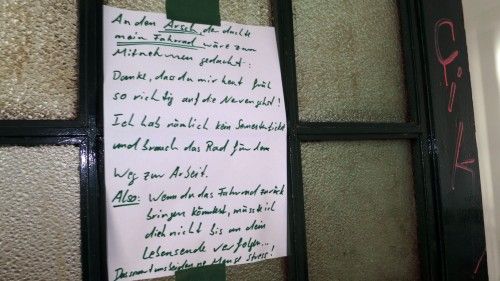 An den Arsch, der dachte
mein Fahrrad wäre zum
Mitnehmen gedacht:
Danke, dass du mir heut früh
so richtig auf die Nerven gehst!
Ich hab nämlich kein Semesterticket
und brauch das Rad für den
Weg zur Arbeit.
Also: Wenn du das Fahrrad zurück
bringen könntest, müsste ich
dich nicht bis an dein
Lebensende verfolgen...
Das spart uns beiden ne Menge Stress!